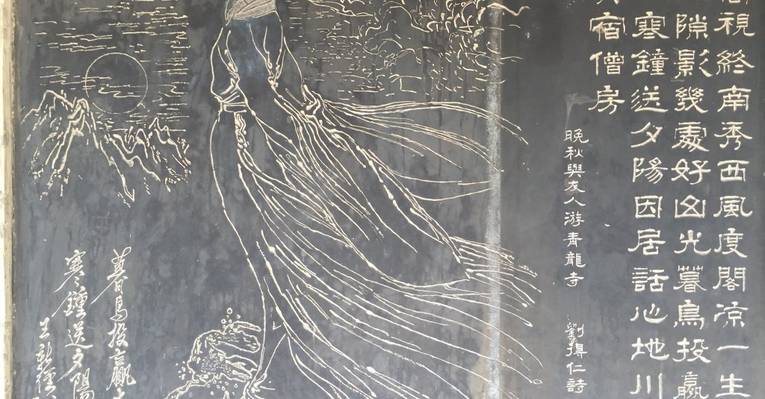 視終南秀西風度閣涼一生
隙影幾處好山光暮鳥投羸
寒鐘送夕陽因居話心地川
宿僧房
晚秋與友人游青龍寺 劉得仁詩
暮鳥投羸
寒鐘送夕陽